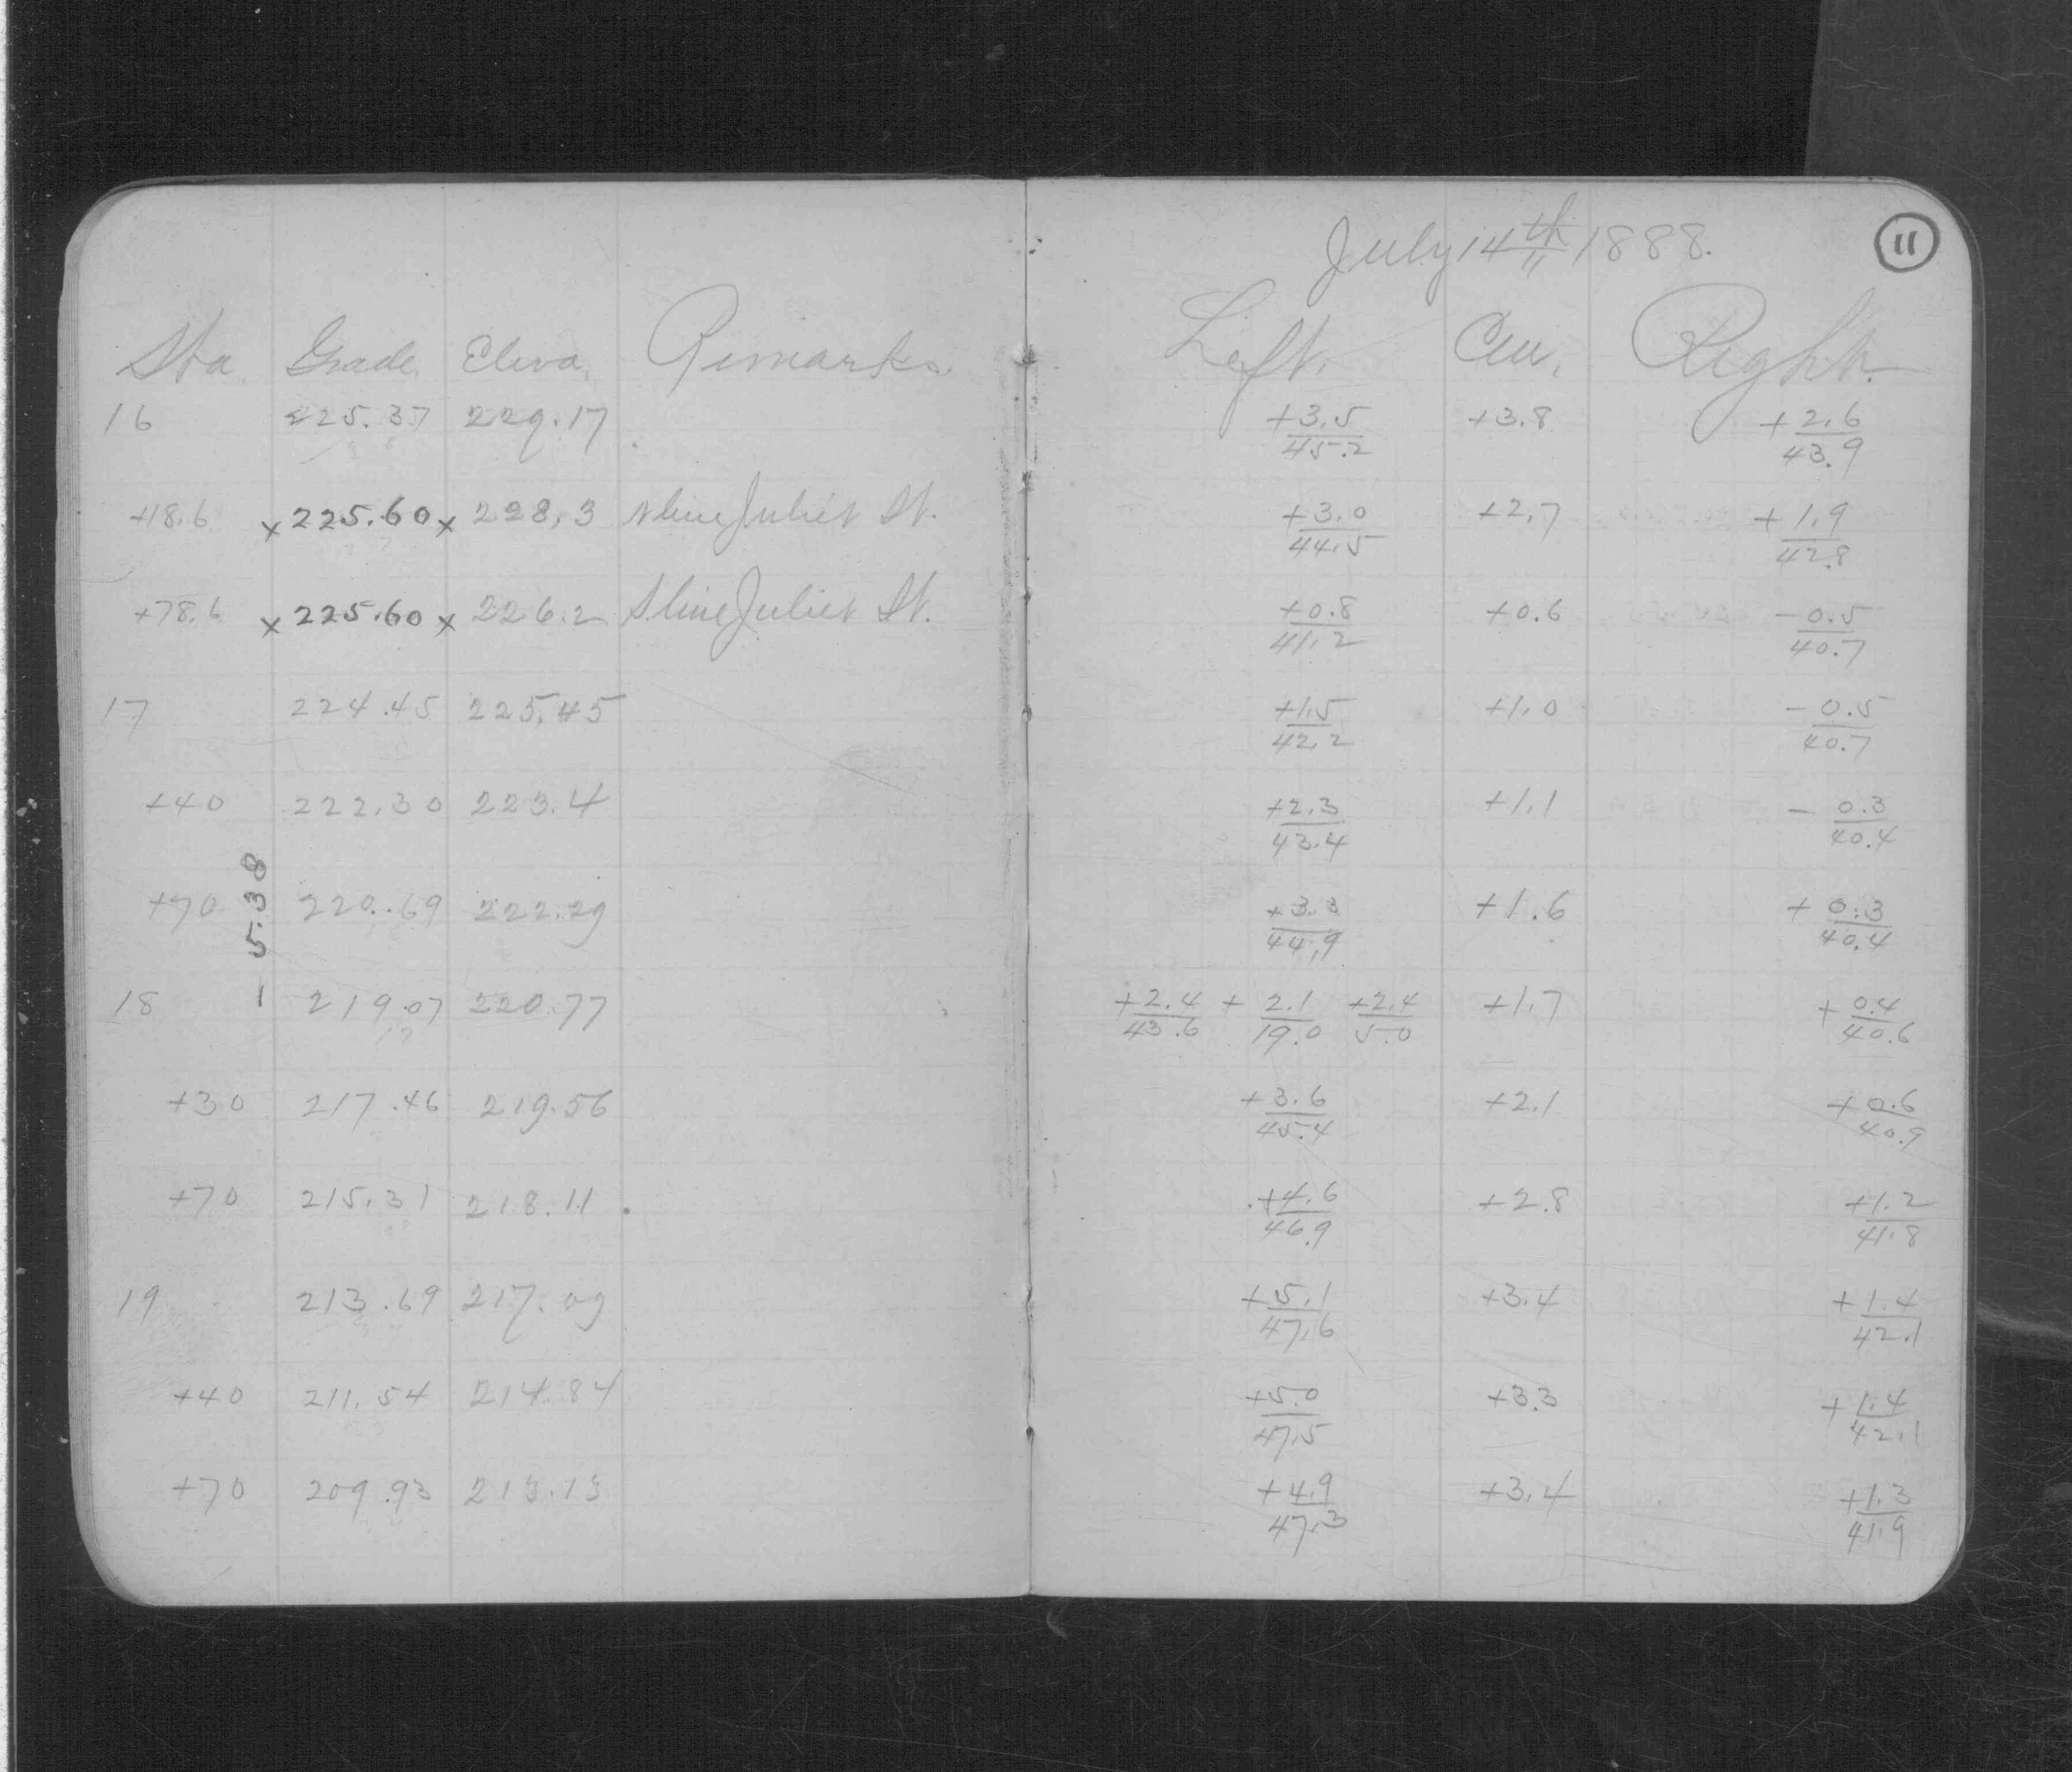 July 14th 1888. 11
Sta. Grade. Eleva. Remarks. Left. Cen. Right.
16 225.37 229.17 +3.5/45.2 +3.8 +2.6/43.9
+18.6 x 225.60 x 228.3 N line Juliet St. +3.0/44.5 +2.7 +1.9/42.8
+78.6 x 225.60 x 226.2 S. line Juliet St. +0.8/41.2 +0.6 -0.5/40.7
17 224.45 225.45 +1.5/42.2 +1.0 -0.5/40.7
+40 222.30 223.4 +2.3/43.4 +1.1 -0.3/40.4
+70 220.69 222.29 +3.3/44.9 +1.6 +0.3/40.4
- 5.38
18 219.07 220.77 +2.4/43.6 +2.1/19.0 +2.4/5.0 +1.7 +0.4/40.6
+30 217.46 219.56 +3.6/45.4 +2.1 +0.6/40.9
+70 215.31 218.11 +4.6/46.9 +2.8 +1.2/41.8
19 213.69 217.09 +5.1/47.6 +3.4 +1.4/42.1
+40 211.54 214.84 +5.0/47.5 +3.3 +1.4/42.1
+70 209.93 213.13 +4.9/47.3 +3.4 +1.3/41.9